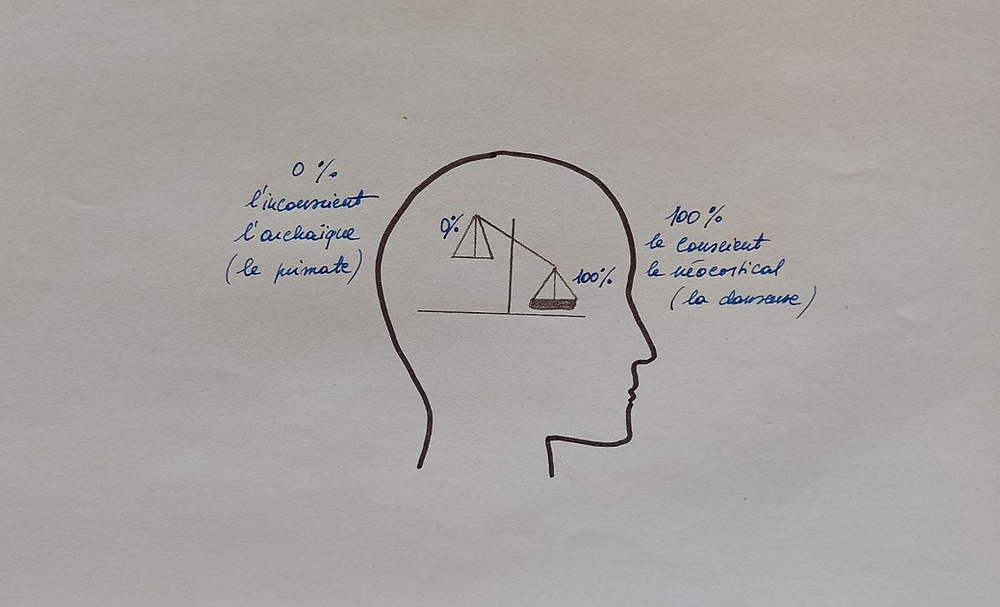 0 %
l'inconscient
l'archaïque
(le primate)
0%
100%
100 %
le conscient
le néocortical
(la danseuse)